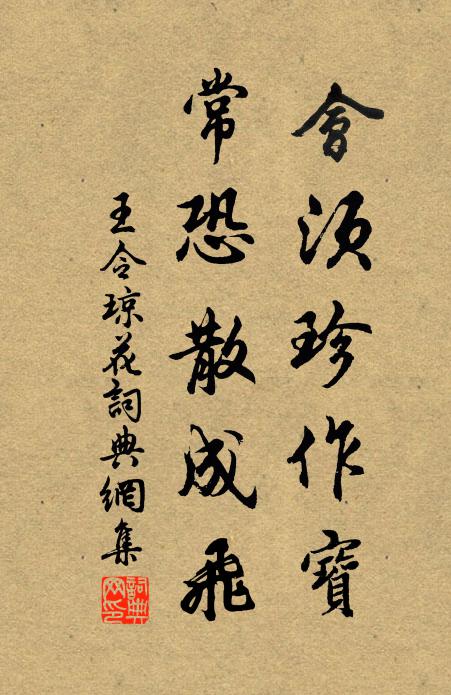 會須珍作寶
常恐散成飛
王令琼花詞典網集
詞典网印